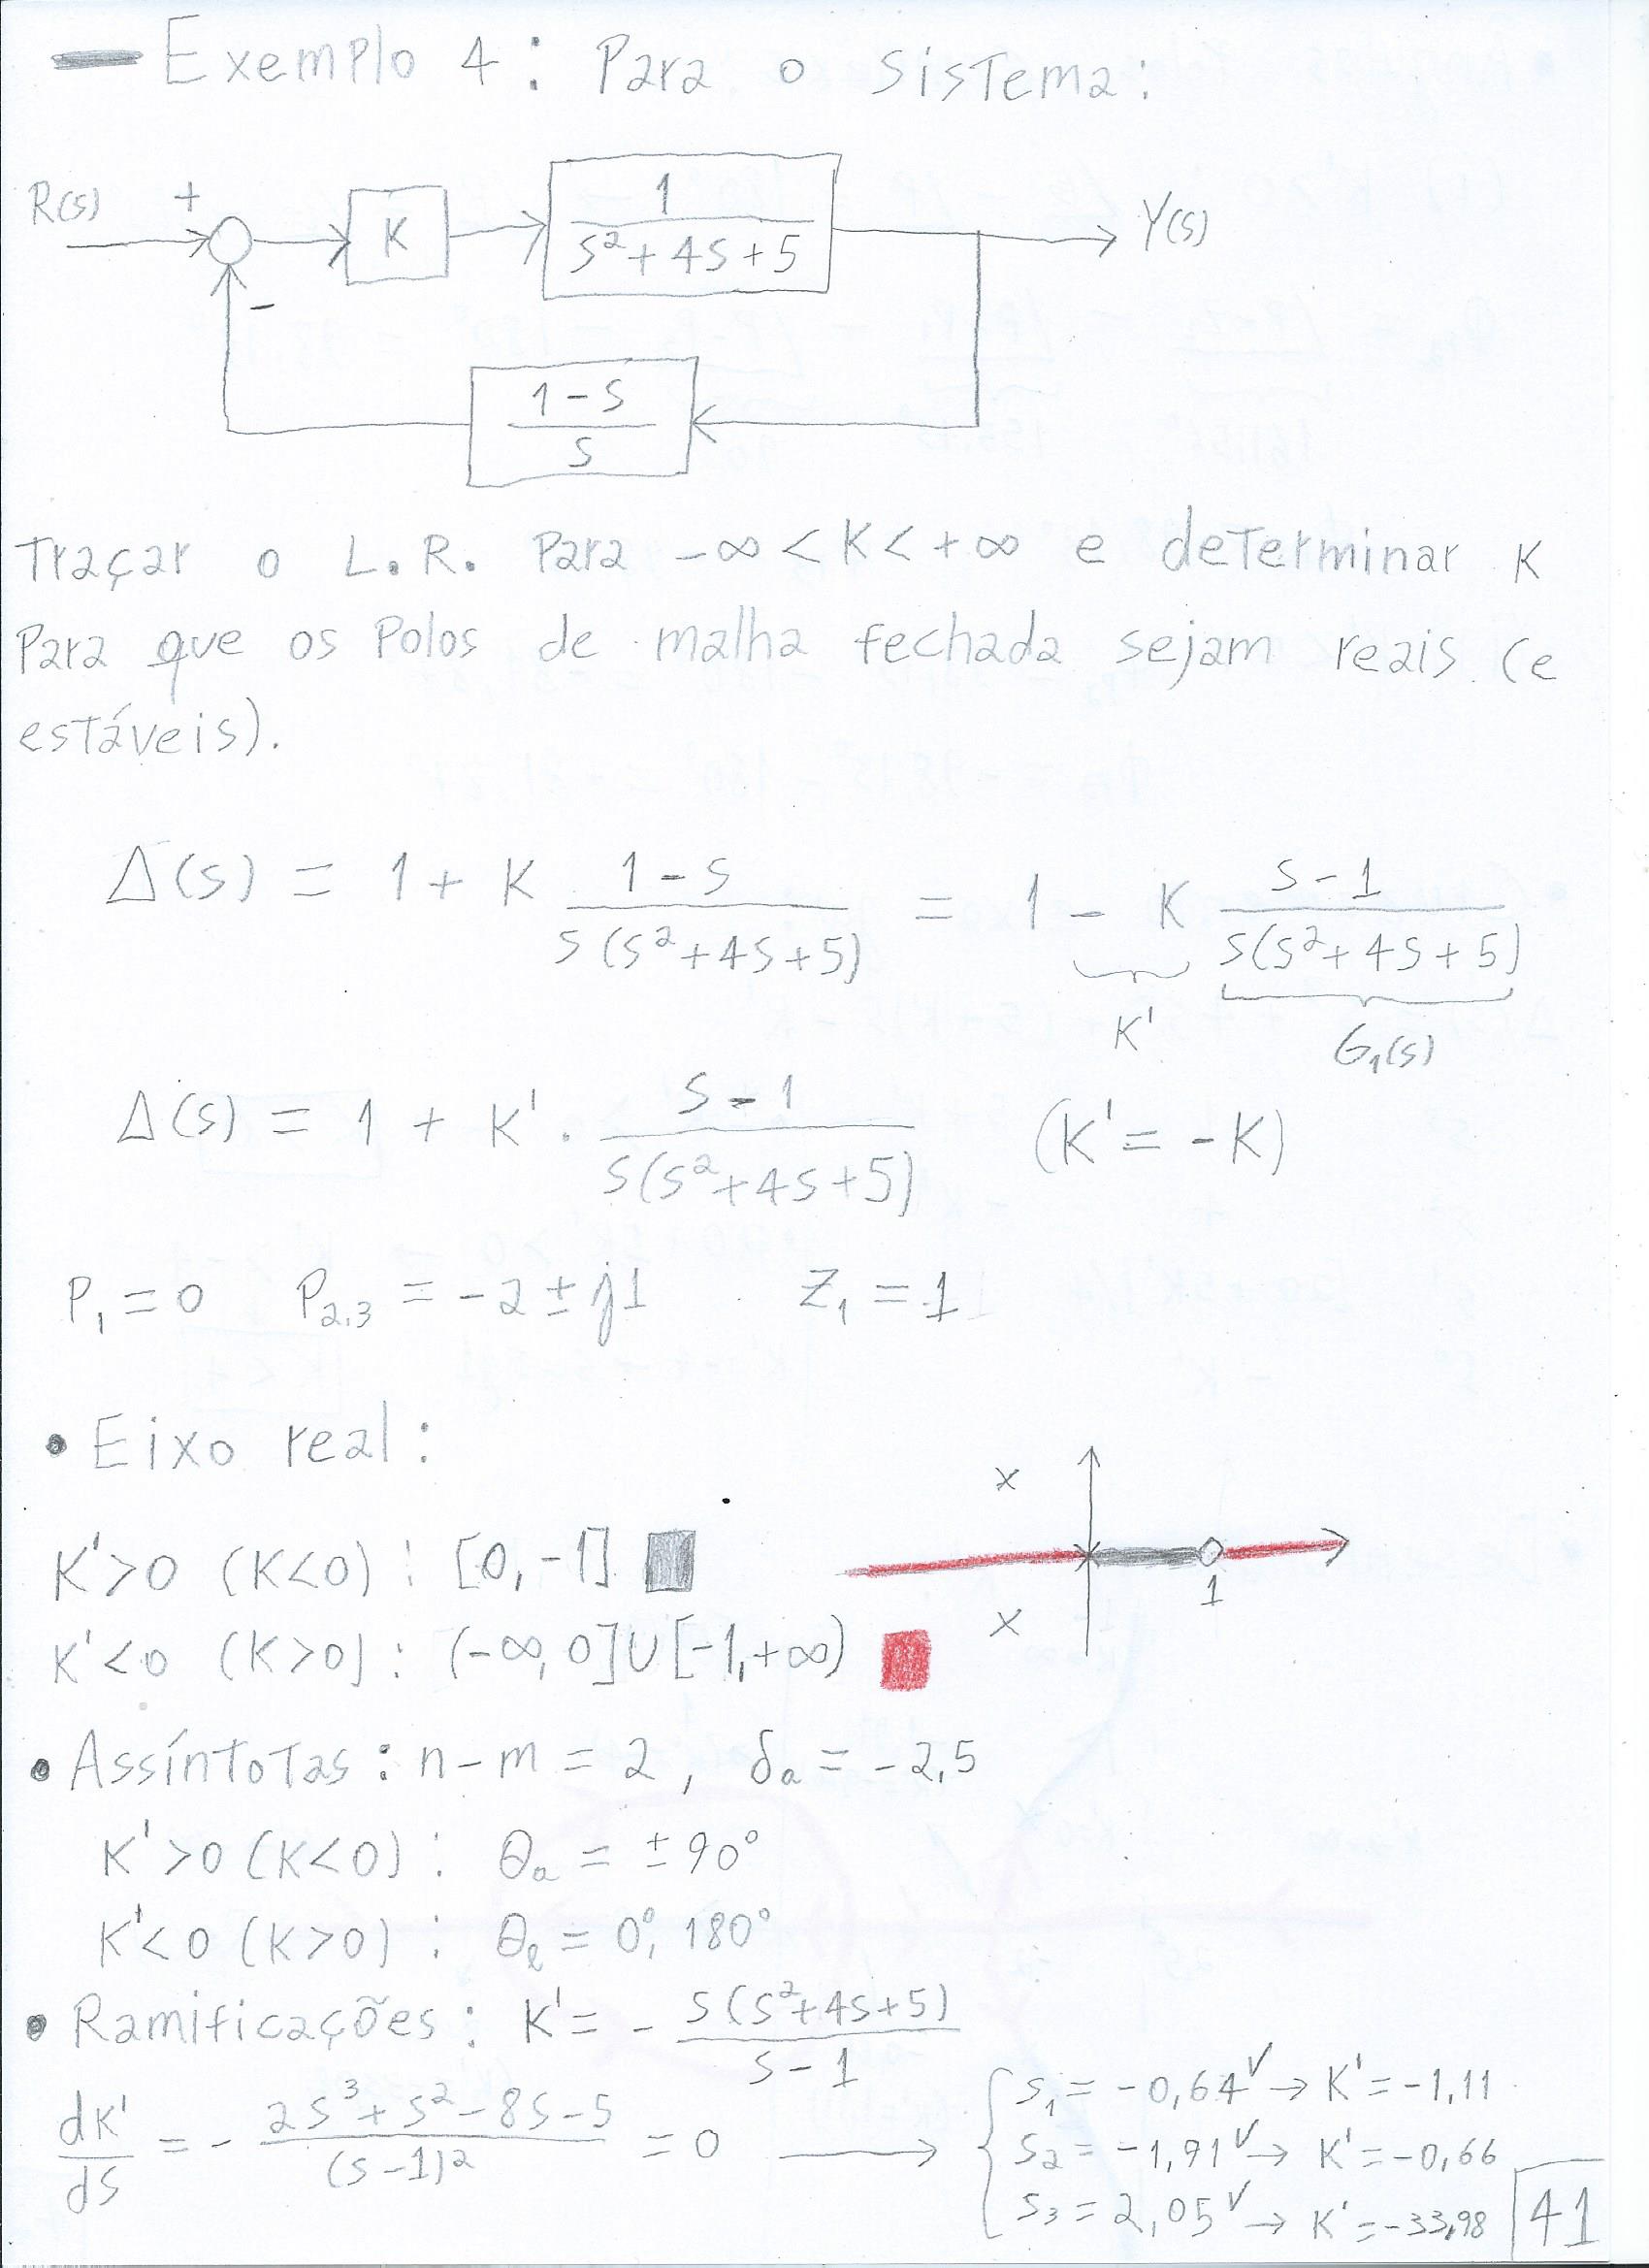 — Exemplo 4: Para o sistema:
R(s) + K 1/(s²+4s+5) Y(s)
-
(1-s)/s
Traçar o L.R. Para -∞<K<+∞ e determinar K
Para que os Polos de malha fechada sejam reais (e
estáveis).
Δ(s) = 1 + K (1-s)/(s(s²+4s+5)) = 1 - K (s-1)/(s(s²+4s+5))
K' G₁(s)
Δ(s) = 1 + K' . (s-1)/(s(s²+4s+5)) (K' = -K)
P₁ = 0 P₂,₃ = -2 ± j1 Z₁ = 1
• Eixo real:
x
K'>0 (K<0) : [0,-1]
1
x
K'<0 (K>0) : (-∞,0]U[-1,+∞)
• Assíntotas: n-m = 2, δa = -2,5
K'>0 (K<0) : θa = ±90°
K'<0 (K>0) : θa = 0°, 180°
• Ramificações: K' = - s(s²+4s+5)/(s-1)
dK'/ds = - (2s³+s²-8s-5)/(s-1)² = 0 → { s₁ = -0,64 ✓ → K' = -1,11
s₂ = -1,91 ✓ → K' = -0,66
s₃ = 2,05 ✓ → K' = -33,98
41